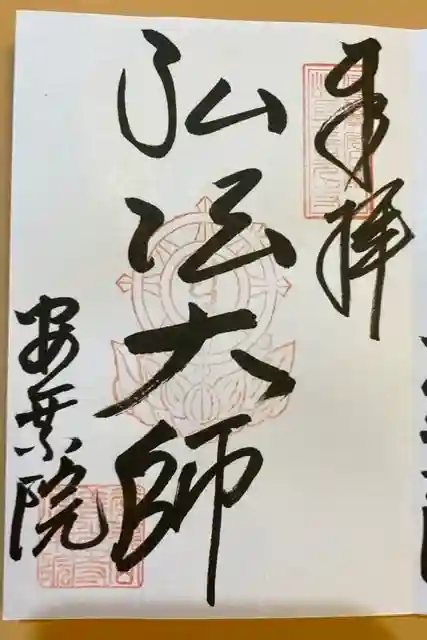 奉拝
弘法大師
安養院